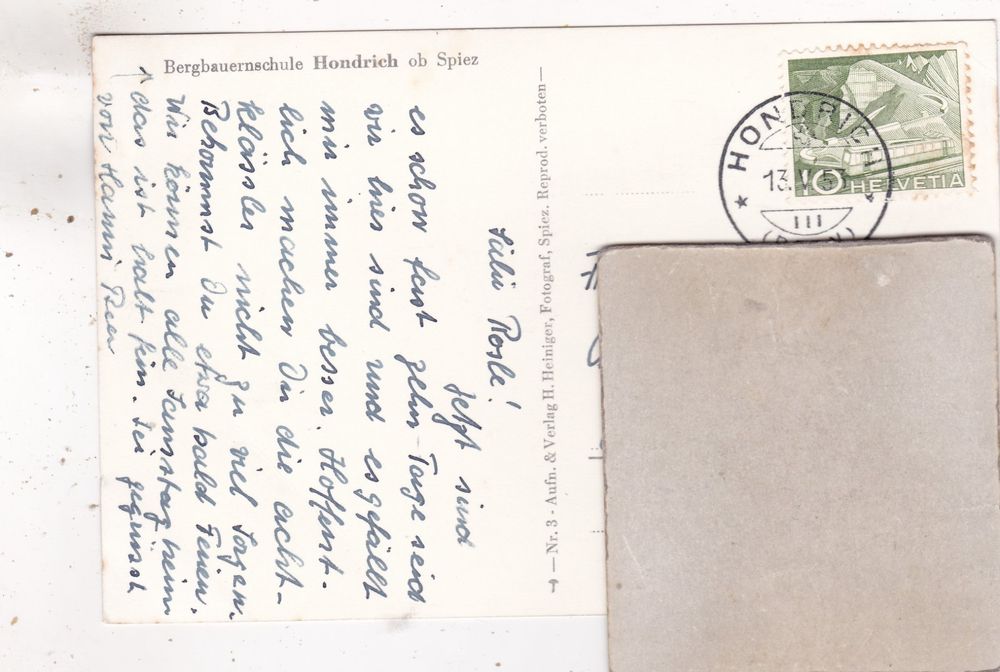 Bergbauernschule Hondrich ob Spiez
Salü Rosle!
Jetzt sind
es schon fast zehn Tage seid
wir hier sind und es gefällt
mir immer besser. Hoffent-
lich machen Dir die acht-
klässler nicht zu viel Sorgen.
Bekommst Du etwa bald Ferien.
Wir können alle Samstag heim
das ist halt fein. Sei gegrüsst
von Hanni
Nr. 3 - Aufn. & Verlag H. Heiniger, Fotograf, Spiez. Reprod. verboten
HONDRICH
13. V.
III
10 HELVETIA